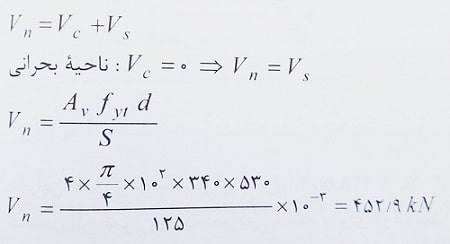 V_n = V_c + V_s
ناحیهٔ بحرانی : V_c = ۰ ⇒ V_n = V_s
V_n = \frac{A_v f_{yt} d}{S}
V_n = \frac{۴ × \frac{π}{۴} × ۱۰^۲ × ۳۴۰ × ۵۳۰}{۱۲۵} × ۱۰^{-۳} = ۴۵۲/۹ kN